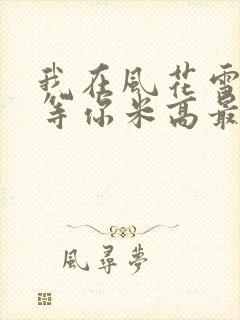 我在風花雪
等你米高最
風尋夢